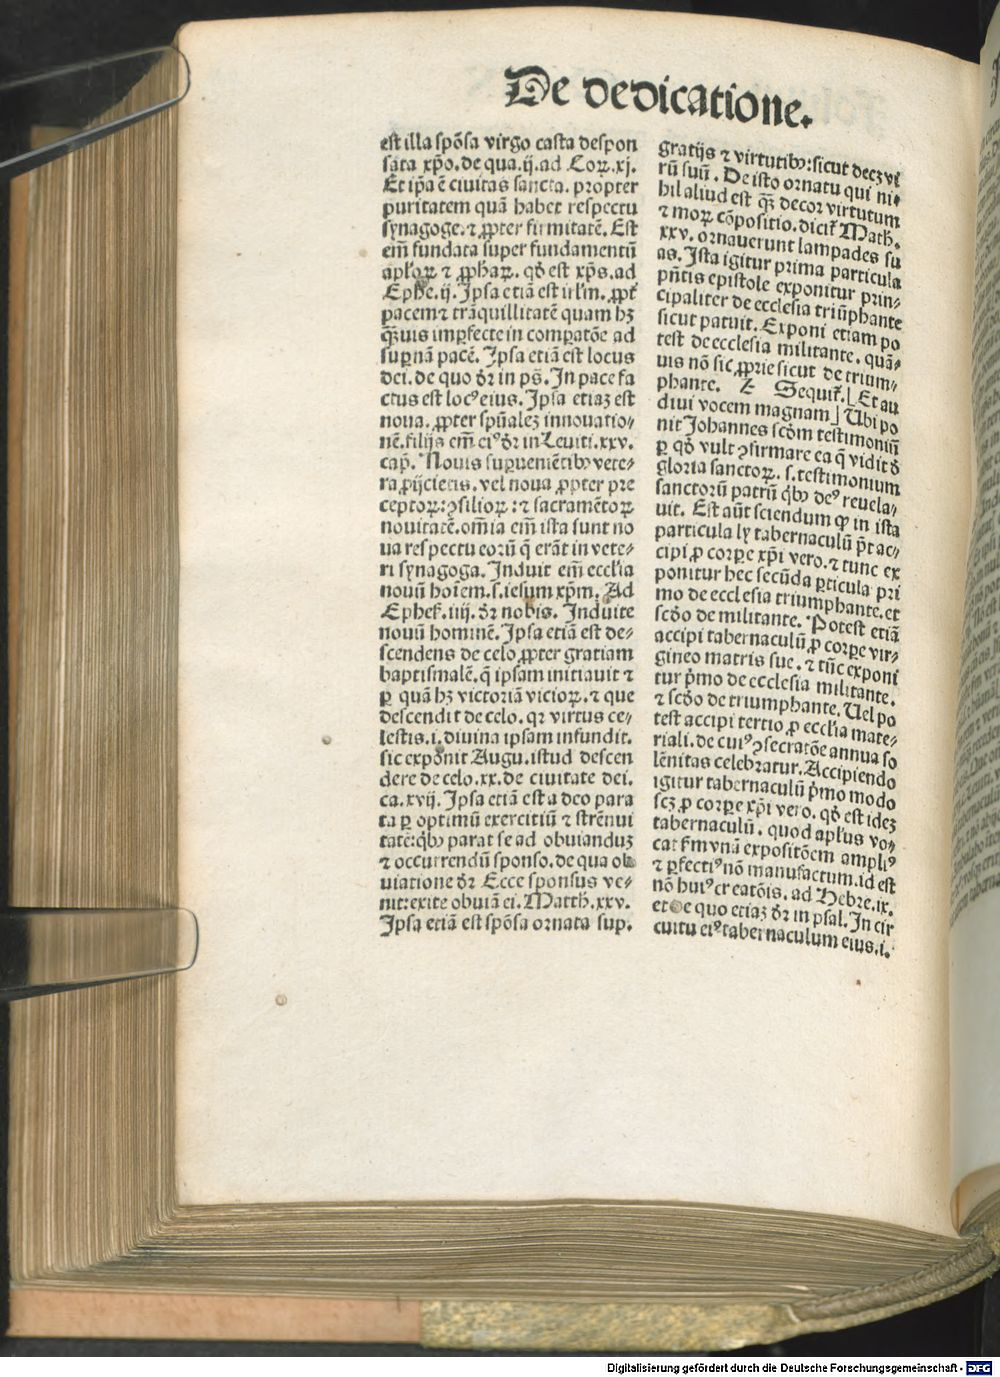 De dedicatione.
est illa spõsa virgo casta despon
sata xp̃o. de qua .ij. ad Coꝝ. xj.
Et ip̃a ẽ civitas sancta. propter
puritatem quã habet respectu
synagoge. ⁊ ꝓpter firmitatẽ. Est
em̃ fundata super fundamentũ
apl'oꝝ ⁊ ꝓphaꝝ. qð est xp̃s. ad
Ephe. ij. Ipsa etiã est irl'm. ꝓpt̃
pacem ⁊ trãquillitatẽ quam hꝫ
q̃ꝫuis imꝑfecte in comparatõe ad
suꝑnã pacẽ. Ipsa etiã est locus
dei. de quo dr̃ in ps̃. In pace fa
ctus est locꝰ eius. Ipsa etiaꝫ est
noua. ꝓpter spũaleꝫ innouatio⸗
nẽ. filijs em̃ eiꝰ dr̃ in Leuiti. xxv.
cap̃. Nouis suꝑueniẽtibꝰ vete⸗
ra ꝓijcietis. vel noua ꝓpter pre
ceptoꝝ: ꝯsilioꝝ: ⁊ sacramẽtoꝝ
nouitatẽ. om̃ia em̃ ista sunt no
ua respectu eorũ q̃ erãt in vete⸗
ri synagoga. Induit em̃ eccl'ia
nouũ hoĩem. s. iesum xp̃m. Ad
Ephes̃. iiij. dr̃ nobis. Induite
nouũ hominẽ. Ipsa etiã est de⸗
scendens de celo. ꝓpter gratiam
baptismalẽ. q̃ ipsam initiauit ⁊
ꝑ quã hꝫ victoriã vicioꝝ. ⁊ que
descendit de celo. qꝛ virtus ce⸗
lestis. i. diuina ipsam infundit.
sic exponit Augu. istud descen
dere de celo. xx. de ciuitate dei.
ca. xvij. Ipsa etiã est a deo para
ta ꝑ optimũ exercitiũ ⁊ strẽnui
tatẽ: qͥbꝰ parat se ad obuianduꝫ
⁊ occurrendũ sponso. de qua ob
uiatione dr̃ Ecce sponsus ve⸗
nit: exite obuiã ei. Matth. xxv.
Ipsa etiã est spõsa ornata sup.
gratijs ⁊ virtutibꝰ: sicut decꝫ vi
rũ suũ. De isto ornatu qui ni⸗
hil aliud est q̃ꝫ decor virtutum
⁊ moꝝ cõpositio. dicit̃ Math.
xxv. ornauerunt lampades su
as. Ista igitur prima particula
pñtis epistole exponitur prin⸗
cipaliter de ecclesia triũphante
sicut patuit. Exponi etiam po
test de ecclesia militante. quã⸗
uis nõ sic ꝓprie sicut de trium⸗
phante. Sequit̃. Et au
diui vocem magnam Ubi po
nit Johannes scðm testimoniũ
ꝑ qð vult ꝯfirmare ea q̃ vidit ð
gloria sanctoꝝ. s. testimonium
sanctorũ patrũ qͥbꝰ deꝰ reuela⸗
uit. Est aũt sciendum ꝙ in ista
particula ly tabernaculũ pt̃ ac⸗
cipi ꝓ corꝑe xp̃i vero. ⁊ tunc ex
ponitur hec secũda ꝑticula pri
mo de ecclesia triumphante. et
scðo de militante. Potest etiã
accipi tabernaculũ ꝓ corꝑe vir⸗
gineo matris sue. ⁊ tũc exponi
tur p̃mo de ecclesia militante.
⁊ scðo de triumphante. Uel po
test accipi tertio ꝓ eccl'ia mate⸗
riali. de cuiꝰ ꝯsecratõe annua so
lẽnitas celebratur. Accipiendo
igitur tabernaculũ p̃mo modo
scꝫ ꝓ corꝑe xp̃i vero. qð est ideꝫ
tabernaculũ. quod apl'us vo⸗
cat ẜm vnã expositõem ampliꝰ
⁊ ꝑfectiꝰ nõ manufactum. id est
nõ huiꝰ creatõis. ad Hebre. ix.
et de quo etiaꝫ dr̃ in psal. In cir
cuitu eiꝰ tabernaculum eius. i.
Digitalisierung gefördert durch die Deutsche Forschungsgemeinschaft - DFG